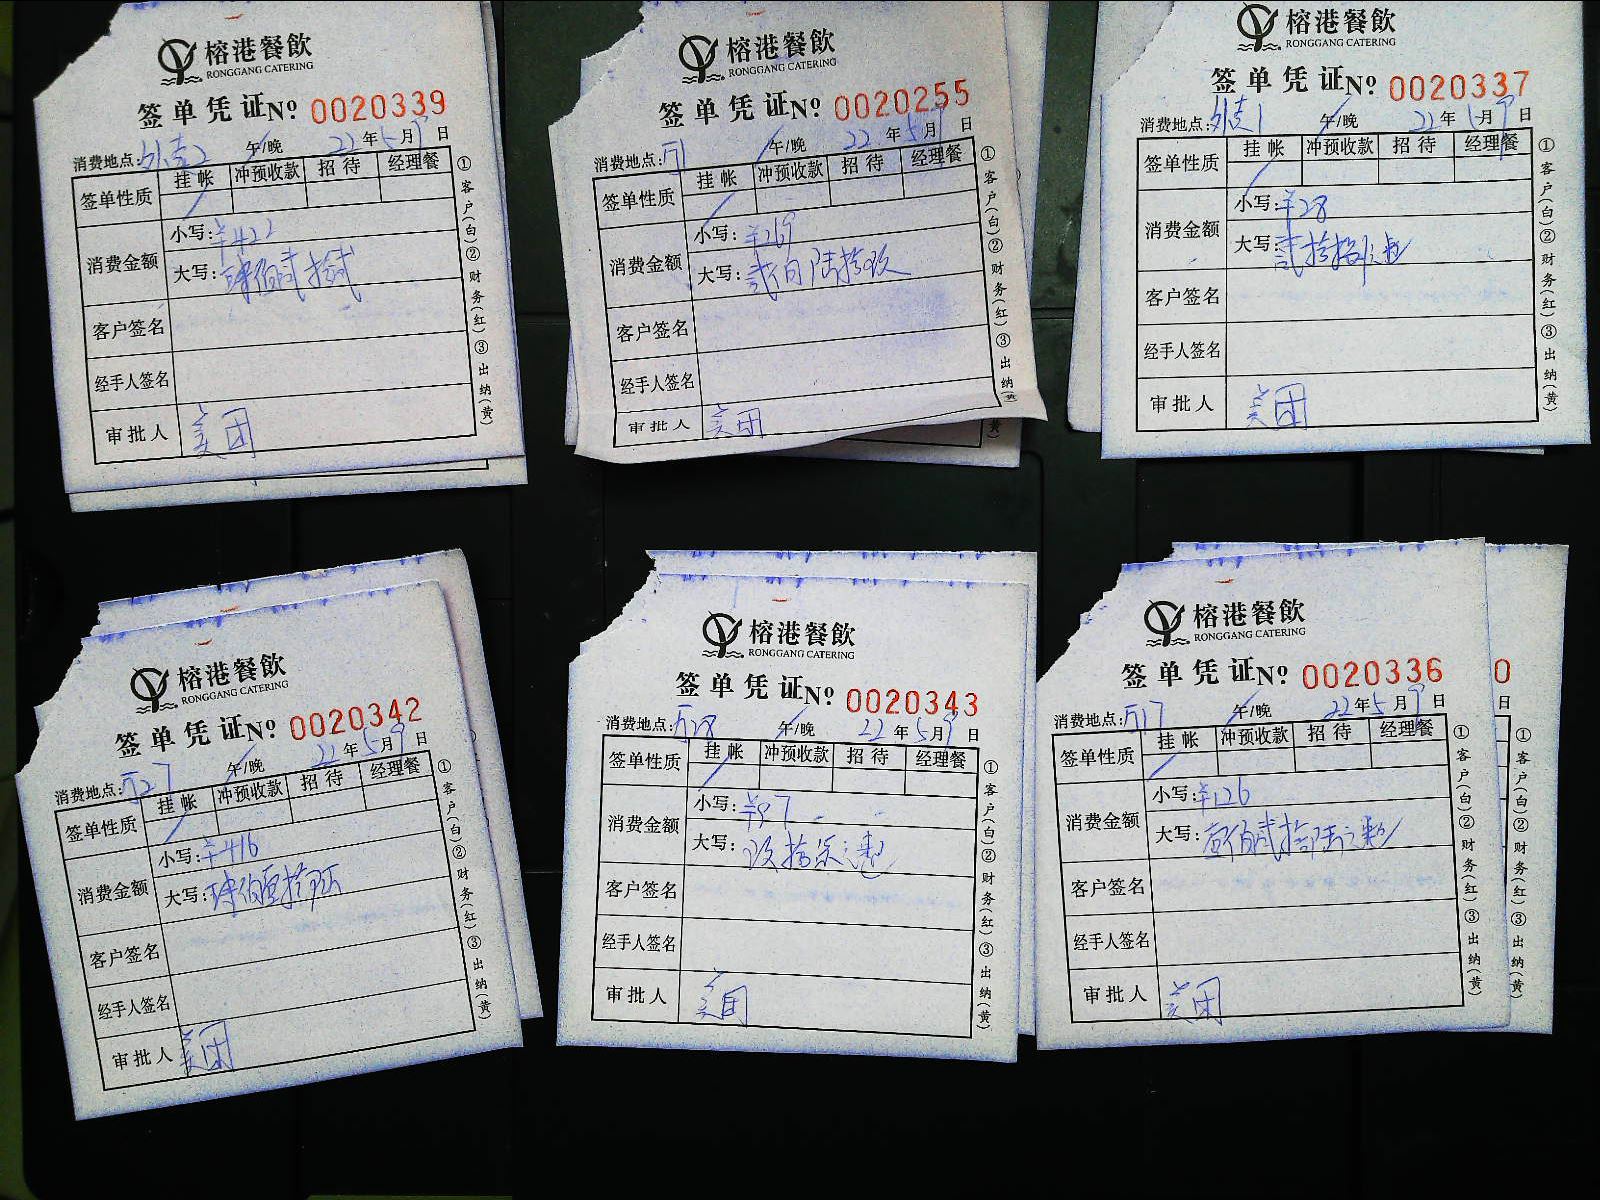 榕港餐飲
RONGGANG CATERING
签单凭证 No 0020339
消费地点:外卖2 午/晚 22年5月9日
签单性质 挂帐 冲预收款 招待 经理餐
消费金额
小写:¥422
大写:肆佰贰拾贰
客户签名
经手人签名
审批人 美团
①客户(白)②财务(红)③出纳(黄)
榕港餐飲
RONGGANG CATERING
签单凭证 No 0020255
消费地点:厅1 午/晚 22年5月9日
签单性质 挂帐 冲预收款 招待 经理餐
消费金额
小写:¥269
大写:贰佰陆拾玖
客户签名
经手人签名
审批人 美团
①客户(白)②财务(红)③出纳(黄)
榕港餐飲
RONGGANG CATERING
签单凭证 No 0020337
消费地点:外卖1 午/晚 22年5月9日
签单性质 挂帐 冲预收款 招待 经理餐
消费金额
小写:¥28
大写:贰拾捌元整
客户签名
经手人签名
审批人 美团
①客户(白)②财务(红)③出纳(黄)
榕港餐飲
RONGGANG CATERING
签单凭证 No 0020342
消费地点:厅27 午/晚 22年5月9日
签单性质 挂帐 冲预收款 招待 经理餐
消费金额
小写:¥416
大写:肆佰壹拾陆
客户签名
经手人签名
审批人 美团
①客户(白)②财务(红)③出纳(黄)
榕港餐飲
RONGGANG CATERING
签单凭证 No 0020343
消费地点:厅28 午/晚 22年5月9日
签单性质 挂帐 冲预收款 招待 经理餐
消费金额
小写:¥97
大写:玖拾柒元整
客户签名
经手人签名
审批人 美团
①客户(白)②财务(红)③出纳(黄)
榕港餐飲
RONGGANG CATERING
签单凭证 No 0020336
消费地点:厅17 午/晚 22年5月9日
签单性质 挂帐 冲预收款 招待 经理餐
消费金额
小写:¥126
大写:壹佰贰拾陆元整
客户签名
经手人签名
审批人 美团
①客户(白)②财务(红)③出纳(黄)
0
日
①客户(白)②财务(红)③出纳(黄)